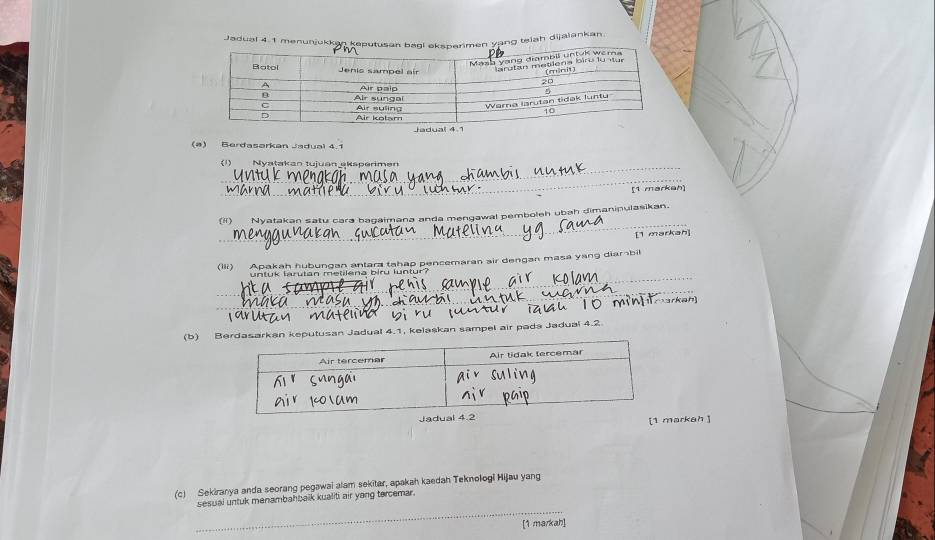 Jadual 4.1 menunjukkan keputusan bagi eksperimen yang telah dijalankan.
PM PB
Botol Jenis sampel air Masa yang diambil untuk warna larutan metilena biru luntur (minit)
A Air paip 20
B Air sungai 5
C Air suling Warna larutan tidak luntur
D Air kolam 10
Jadual 4.1
(a) Berdasarkan Jadual 4.1
(i) Nyatakan tujuan eksperimen
untuk mengkah masa yang diambis untuk
warna matilena biru luntur.
[1 markah]
(ii) Nyatakan satu cara bagaimana anda mengawal pemboleh ubah dimanipulasikan.
menggunakan larutan matelina yg sama
[1 markah]
(iii) Apakah hubungan antara tahap pencemaran air dengan masa yang diambil
untuk larutan metilena biru luntur?
jika air jenis sample air kolam
maka masa yg diambil untuk warna
larutan matelina biru luntur ialah 10 minit markah]
(b) Berdasarkan keputusan Jadual 4.1, kelaskan sampel air pada Jadual 4.2.
Air tercemar Air tidak tercemar
air sungai air suling
air kolam air paip
Jadual 4.2
[1 markah ]
(c) Sekiranya anda seorang pegawai alam sekitar, apakah kaedah Teknologi Hijau yang
sesuai untuk menambahbaik kualiti air yang tercemar.
[1 markah]